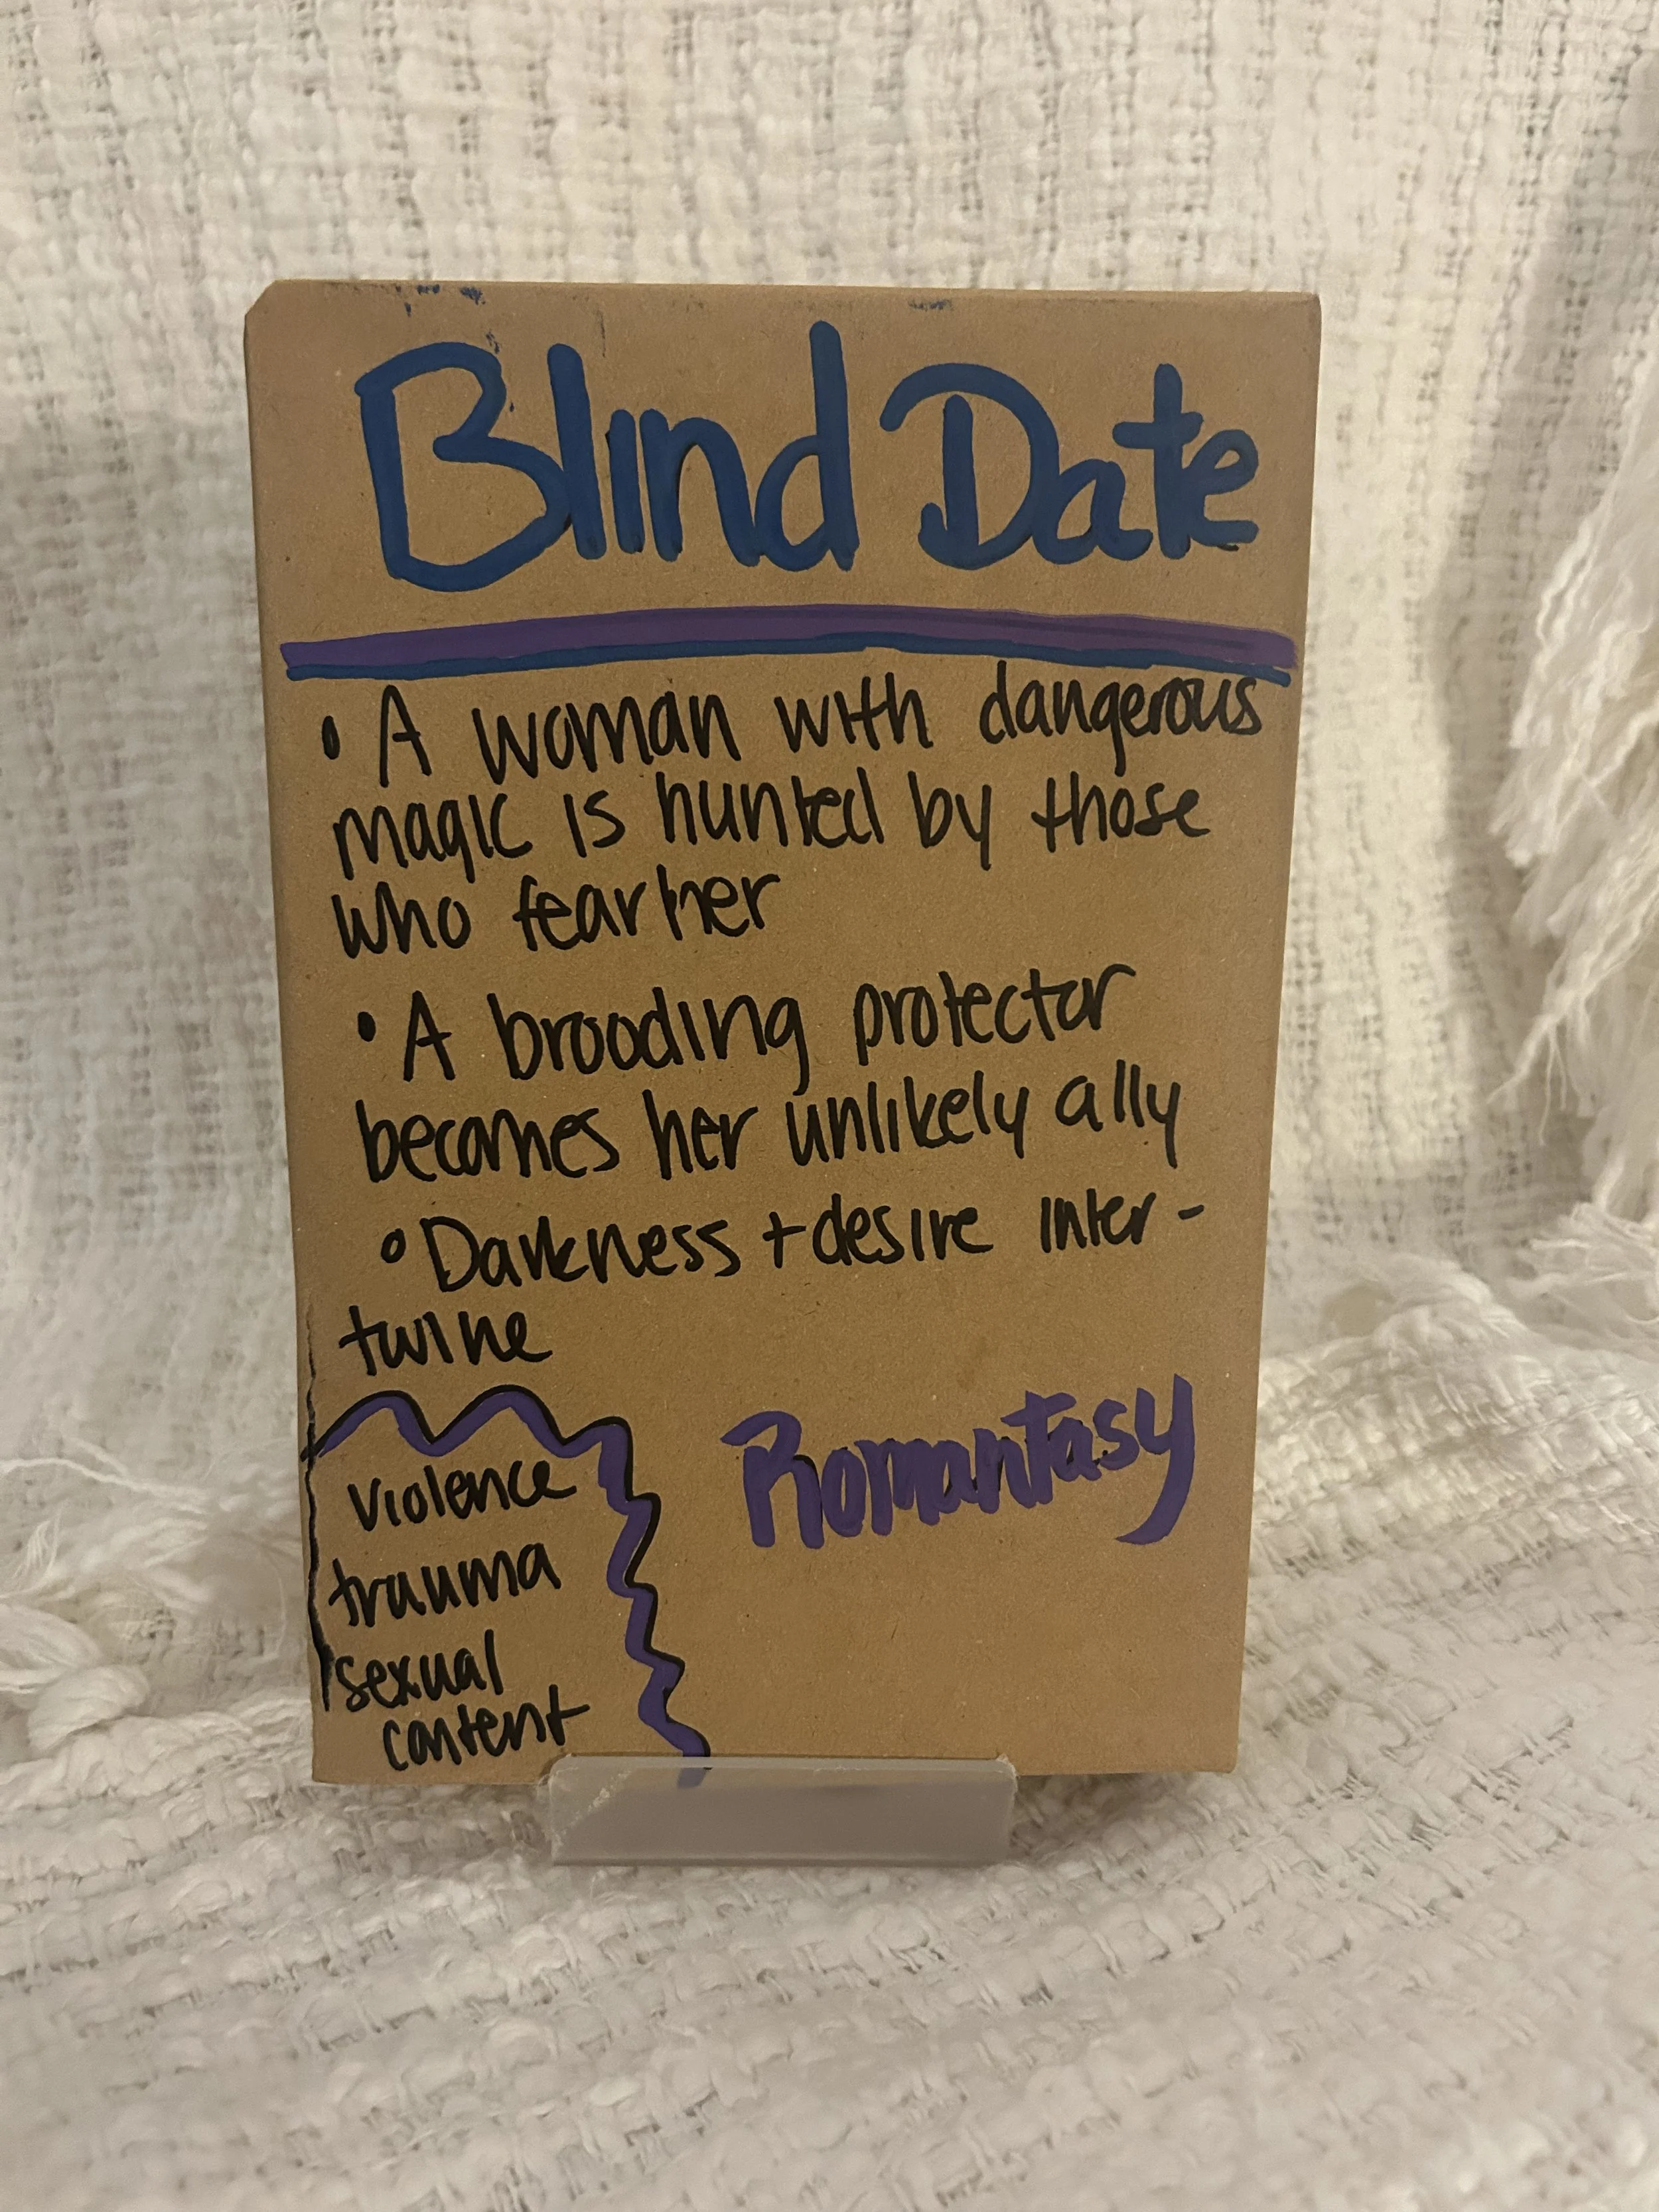 Blind Date
• A woman with dangerous
magic is hunted by those
who fear her
• A brooding protector
becomes her unlikely ally
• Darkness + desire inter-
twine
Romantasy
violence
trauma
sexual
content